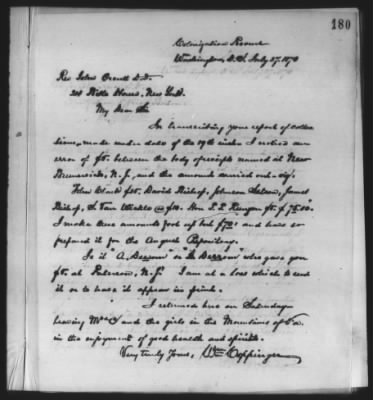 180
Colonization Rooms
Washington, D.C. July 27. 1870
Rev John Orcutt D.D.
Bible House, New York.
My Dear Sir
In transcribing your report of collec
tions, made under date of the 19th inst. I noticed an
error of $5. between the body of receipts named at New
Brunswick, N.J., and the amount carried out - viz.
John Clark $5. David Bishop, Johnson , James
Bishop, & Van @ $10. Hon. Runyon $5. = $75.00.
I make these amounts foot up but $70. and have so
prepared it for the August Repository.
Is it "A. Berrow" or "D. Berrow" who gave you
$5. at Paterson, N.J. I am at a loss which to send
it or to have it appear in print.
I returned here on Saturday
leaving Mrs C and the girls in the Mountains of Va.
in the enjoyment of good health and spirits.
Very truly Yours, Wm Coppinger